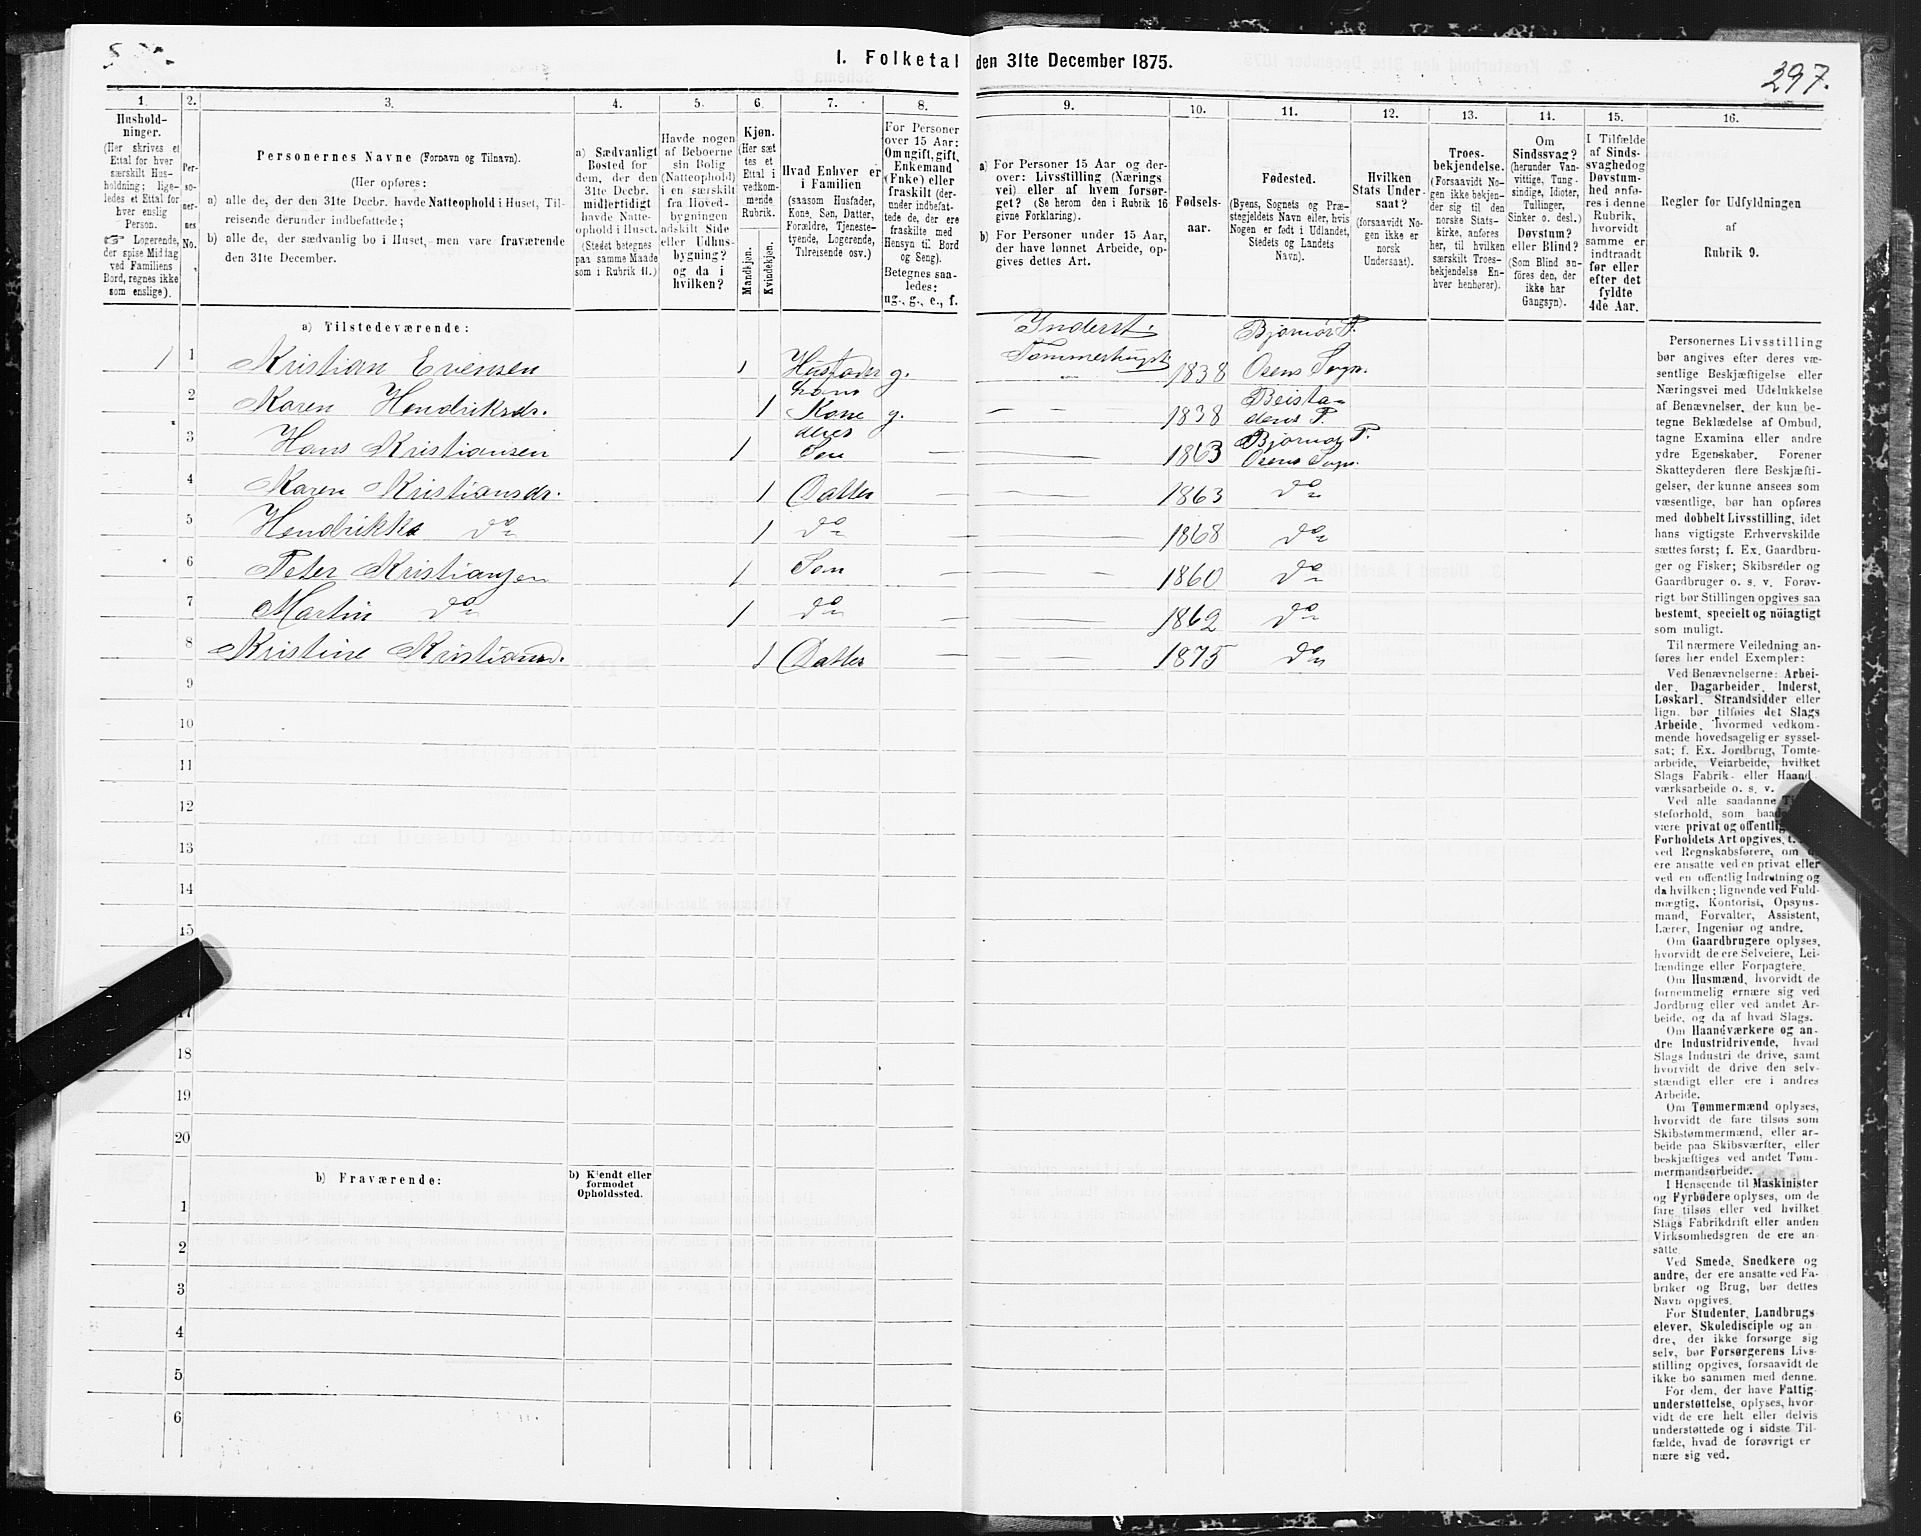 I. Folketal den 31te December 1875.
297.
1. 2. 3. 4. 5. 6. 7. 8. 9. 10. 11. 12. 13. 14. 15. 16.
Hushold-
ninger.
(Her skrives et
Ettal for hver
særskilt Hus-
holdning; lige-
ledes et Ettal for
hver enslig
Person.
☞ Logerende,
der spise Middag
ved Familiens
Bord, regnes ikke
som enslige).
Per-
so-
ner-
nes
No.
Personernes Navne (Fornavn og Tilnavn).
(Her opføres:
a) alle de, der den 31te Decbr. havde Natteophold i Huset, Til-
reisende derunder indbefattede;
b) alle de, der sædvanlig bo i Huset, men vare fraværende
den 31te December.
a) Sædvanligt
Bosted for
dem, der den
31te Decbr.
midlertidigt
havde Natte-
ophold i Huset.
(Stedet betegnes
paa samme Maade
som i Rubrik 11.)
Havde nogen
af Beboerne
sin Bolig
(Natteophold)
i en særskilt
fra Hoved-
bygningen
adskilt Side
eller Udhus-
bygning?
og da i
hvilken?
Kjøn.
(Her sæt
tes et
Ettal i
vedkom-
mende
Rubrik.
Mandkjøn.
Kvindekjøn.
Hvad Enhver er
i Familien
(saasom Husfader,
Kone, Søn, Datter,
Forældre, Tjeneste-
tyende, Logerende,
Tilreisende osv.)
For Personer
over 15 Aar:
Om ugift, gift,
Enkemand
(Enke) eller
fraskilt (der-
under indbefat-
tede de, der ere
fraskilte med
Hensyn til Bord
og Seng).
Betegnes saa-
ledes:
ug., g., e., f.
a) For Personer 15 Aar og der-
over: Livsstilling (Nærings
vei) eller af hvem forsør-
get? (Se herom den i Rubrik 16
givne Forklaring).
b) For Personer under 15 Aar,
der have lønnet Arbeide, op-
gives dettes Art.
Fødsels-
aar.
Fødested.
(Byens, Sognets og Præ-
stegjeldets Navn eller, hvis
Nogen er født i Udlandet,
Stedets og Landets
Navn).
Hvilken
Stats Under-
saat?
(forsaavidt No-
gen ikke er
norsk
Undersaat).
Troes-
bekjendelse.
(Forsaavidt No-
gen ikke bekjen-
der sig til den
norske Stats-
kirke, anføres
her, til hvilken
særskilt Troes-
bekjendelse En-
hver henhører).
Om
Sindssvag?
(herunder Van-
vittige, Tung-
sindige, Idioter,
Tullinger,
Sinker o. desl.)
Døvstum?
eller Blind?
(Som Blind an-
føres den, der
ikke har
Gangsyn).
I Tilfælde
af Sinds-
svaghed og
Døvstum-
hed anfø-
res i denne
Rubrik,
hvorvidt
samme er
indtraadt
før eller
efter det
fyldte
4de Aar.
Regler for Udfyldningen
af
Rubrik 9.
a) Tilstedeværende:
1 1 Kristian Evensen 1 Husfader g. Inderst. Tømmerhugst 1838 Bjørnør P. Osens Sogn.
2 Karen Hendriksdr. 1 hans Kone g. — — 1838 Beista- dens P.
3 Hans Kristiansen 1 deres Søn — — — 1863 Bjørnør P. Osens Sogn.
4 Karen Kristiansdr. 1 Datter — — — 1863 do
5 Hendrikke do 1 do — — — 1868 do
6 Peter Kristiansen 1 Søn — — — 1860 do
7 Martin do 1 do — — — 1862 do
8 Kristine Kristiansd. 1 Datter — — — 1875 do
9
10
11
12
13
14
15
17
18
19
20
b) Fraværende:
b) Kjendt eller
formodet
Opholdssted.
1
2
3
4
5
6
Personernes Livsstilling
bør angives efter deres væ-
sentlige Beskjæftigelse eller
Næringsvei med Udelukkelse
af Benævnelser, der kun be-
tegne Beklædelse af Ombud,
tagne Examina eller andre
ydre Egenskaber. Forener
Skatteyderen flere Beskjæfti-
gelser, der kunne ansees som
væsentlige, bør han opføres
med dobbelt Livsstilling, idet
hans vigtigste Erhvervskilde
sættes først; f. Ex. Gaardbru-
ger og Fisker; Skibsreder og
Gaardbruger o. s. v. Forøv-
rigt bør Stillingen opgives saa
bestemt, specielt og nöiagtigt
som muligt.
Til nærmere Veiledning an-
føres her endel Exempler:
Ved Benævnelserne: Arbei-
der, Dagarbeider, Inderst,
Løskarl, Strandsidder eller
lign. bør tilføies det Slags
Arbeide, hvormed vedkom-
mende hovedsagelig er syssel-
sat; f. Ex. Jordbrug, Tomte-
arbeide, Veiarbeide, hvilket
Slags Fabrik- eller Haand
værksarbeide o. s. v.
Ved alle saadanne
steforhold, som
være privat og offentlig
Forholdets Art opgives,
ved Regnskabsførere, om
ere ansatte ved en privat eller
ved en offentlig Indretning og
da hvilken; lignende ved Fuld-
mægtig, Kontorist, Opsyns-
mand, Forvalter, Assistent,
Lærer, Ingeniør og andre.
Om Gaardbrugere oplyses,
hvorvidt de ere Selveiere, Lei-
lændinge eller Forpagtere.
Om Husmænd, hvorvidt de
fornemmelig ernære sig ved
Jordbrug eller ved andet Ar-
beide, og da af hvad Slags.
Om Haandværkere og an-
dre Industridrivende, hvad
Slags Industri de drive, samt
hvorvidt de drive den selv-
stændigt eller ere i andres
Arbeide.
Om Tømmermænd oplyses,
hvorvidt de fare tilsøs som
Skibstømmermænd, eller ar-
beide paa Skibsværfter, eller
beskjæftiges ved andet Tøm-
mermandsarbeide.
I Henseende til Maskinister
og Fyrbødere oplyses, om de
fare tilsøs eller ved hvilket
Slags Fabrikdrift eller anden
Virksomhedsgren de ere an-
satte.
Ved Smede, Snedkere og
andre, der ere ansatte ved Fa-
briker og Brug, bør dettes
Navn opgives.
For Studenter, Landbrugs
elever, Skoledisciple og an
dre, der ikke forsørge sig
selv, bør Forsørgerens Livs-
stilling opgives, forsaavidt de
ikke bo sammen med denne.
For dem, der have Fattig
understøttelse, oplyses, hvor-
vidt de ere helt eller delvis
understøttede og i sidste Til-
fælde, hvad de forøvrigt er
nære sig ved.